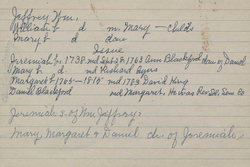 Jeffrey Wm.
William b d m. Mary — Childs
Mary b d dau
Issue
Jeremiah b. 1738 md Sept 2 1763 Ann Blackford dau of Daniel
Mary b d md Richard Ayers
Margaret b 1765 – 1810? md 1783 David King
Daniel Blackford md Margaret. He was Rev Sol. Son Co
Jeremiah s. of Wm Jeffrey
Mary, Margaret & Daniel ch. of Jeremiah